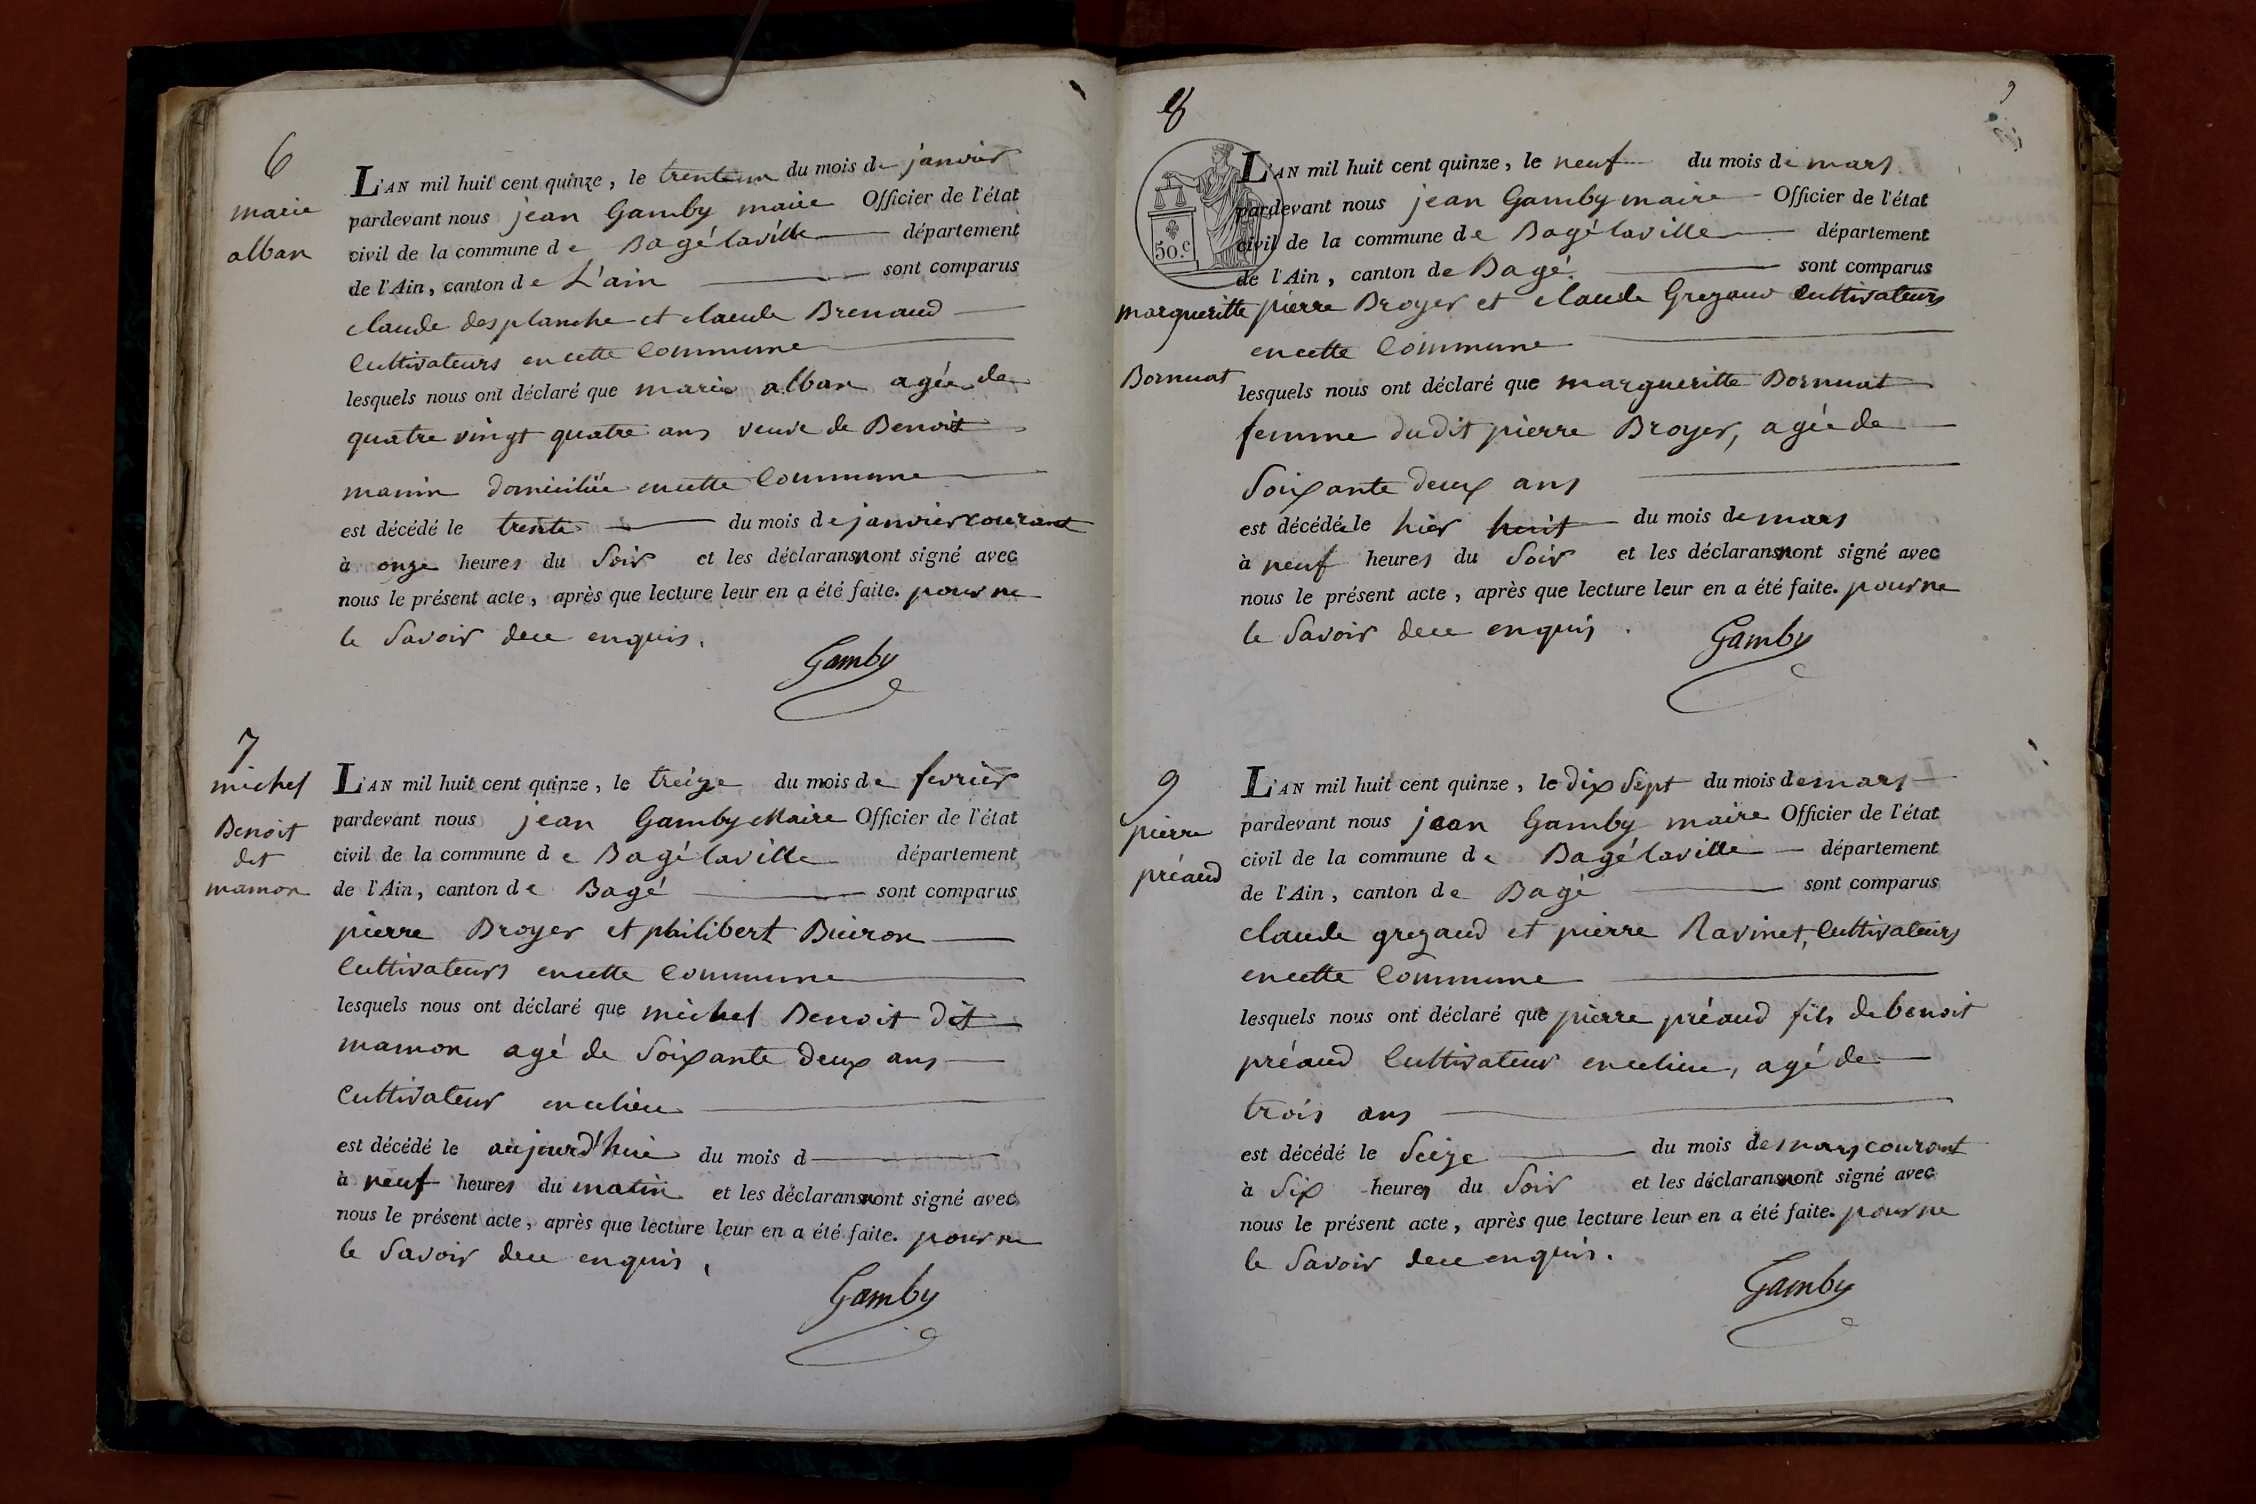 6
marie
alban
L'AN mil huit cent quinze, le trente un du mois de janvier
pardevant nous jean Gamby maire Officier de l'état
civil de la commune de Bagélaville département
de l'Ain, canton de L'ain sont comparus
claude desplanche et claude Brenaud
Cultivateurs en cette Commune
lesquels nous ont déclaré que marie alban agée de
quatre vingt quatre ans veuve de Benoit
manin domiciliée en cette Commune
est décédé le trente du mois de janvier courant
à onze heures du Soir et les déclarans nont signé avec
nous le présent acte, après que lecture leur en a été faite. pour ne
le Savoir de ce enquis.
Gamby
7
michel
Benoit
dit
mamon
L'AN mil huit cent quinze, le treize du mois de fevrier
pardevant nous jean Gamby Maire Officier de l'état
civil de la commune de Bagélaville département
de l'Ain, canton de Bagé sont comparus
pierre Broyer et philibert Buiron
Cultivateurs en cette Commune
lesquels nous ont déclaré que michel Benoit dit
mamon agé de Soixante deux ans
Cultivateur en ce lieu
est décédé le aujourd'hui du mois d
à neuf heures du matin et les déclarans nont signé avec
nous le présent acte, après que lecture leur en a été faite. pour ne
le Savoir de ce enquis.
Gamby
8
50.c
margueritte
Bornuat
L'AN mil huit cent quinze, le neuf du mois de mars
pardevant nous jean Gamby maire Officier de l'état
civil de la commune de Bagélaville département
de l'Ain, canton de Bagé sont comparus
pierre Broyer et claude Grezaud Cultivateurs
en cette Commune
lesquels nous ont déclaré que margueritte Bornuat
femme dudit pierre Broyer, agée de
Soixante deux ans
est décédée le hier huit du mois de mars
à neuf heures du Soir et les déclarans nont signé avec
nous le présent acte, après que lecture leur en a été faite. pour ne
le Savoir de ce enquis.
Gamby
9
pierre
préaud
L'AN mil huit cent quinze, le dix Sept du mois de mars
pardevant nous jean Gamby maire Officier de l'état
civil de la commune de Bagélaville département
de l'Ain, canton de Bagé sont comparus
claude grezaud et pierre Ravinet, Cultivateurs
en cette Commune
lesquels nous ont déclaré que pierre préaud fils de benoit
préaud Cultivateur en ce lieu, agé de
trois ans
est décédé le Seize du mois de mars courant
à Six heures du Soir et les déclarans nont signé avec
nous le présent acte, après que lecture leur en a été faite. pour ne
le Savoir de ce enquis.
Gamby